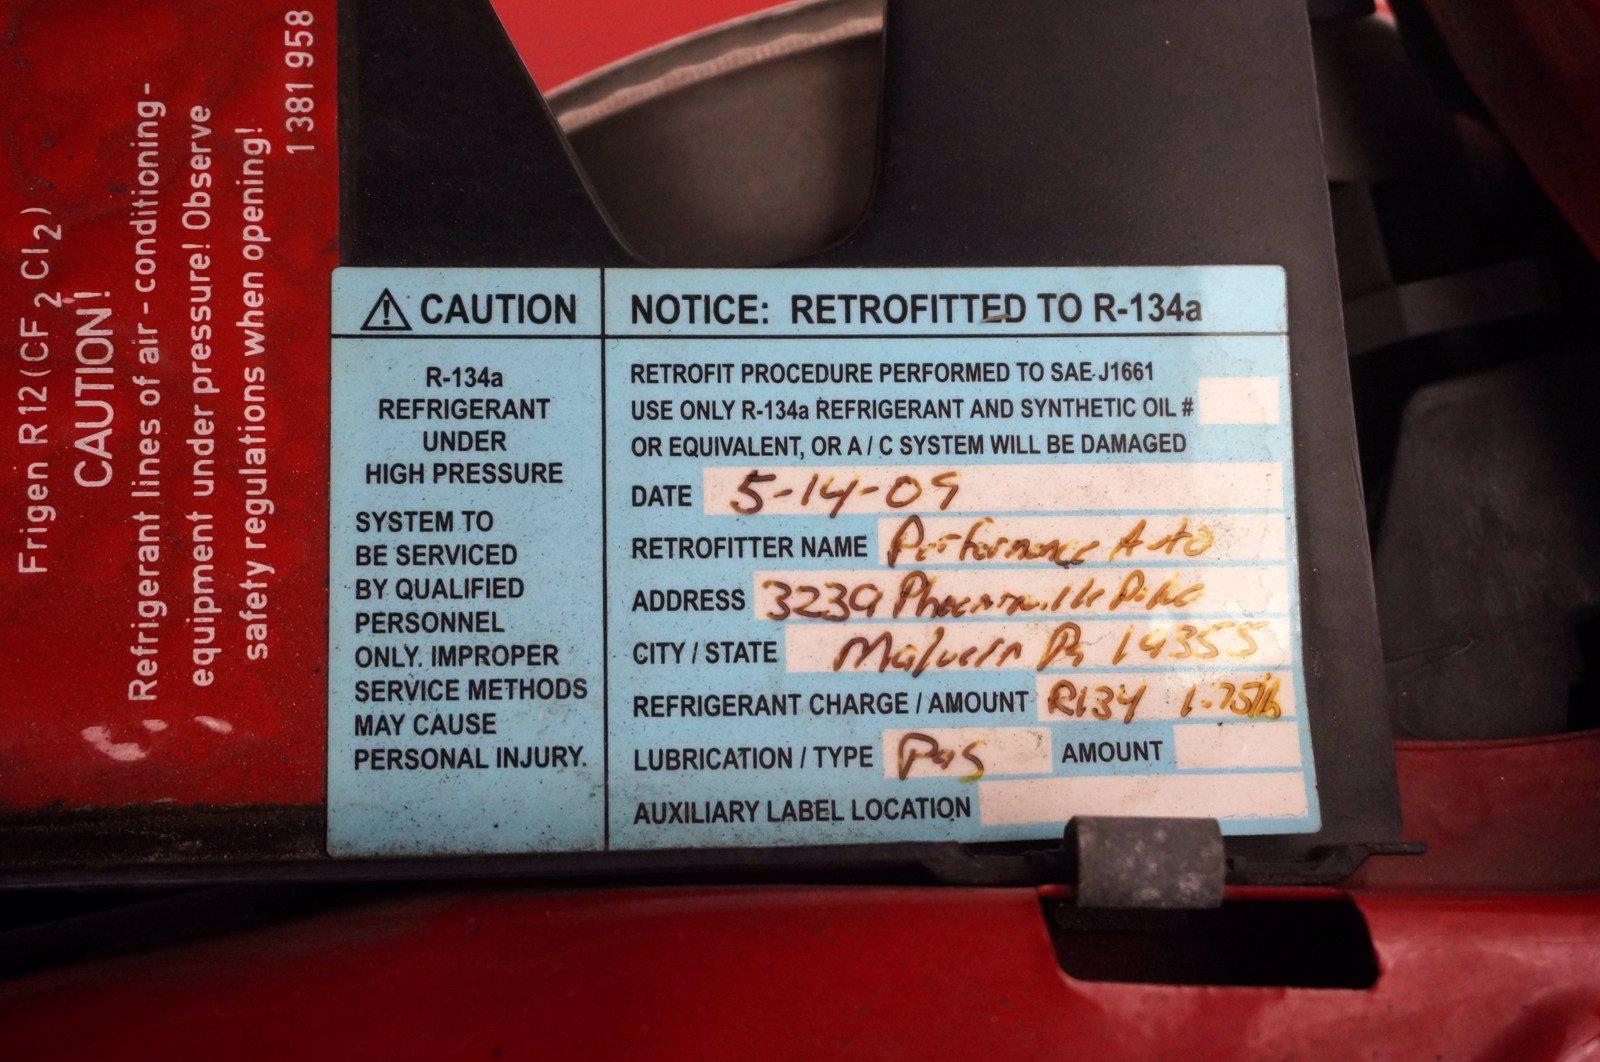 Frigen R12 (CF2Cl2)
CAUTION!
Refrigerant lines of air-conditioning-
equipment under pressure! Observe
safety regulations when opening!
1 381 958
CAUTION
R-134a
REFRIGERANT
UNDER
HIGH PRESSURE
SYSTEM TO
BE SERVICED
BY QUALIFIED
PERSONNEL
ONLY. IMPROPER
SERVICE METHODS
MAY CAUSE
PERSONAL INJURY.
NOTICE: RETROFITTED TO R-134a
RETROFIT PROCEDURE PERFORMED TO SAE J1661
USE ONLY R-134a REFRIGERANT AND SYNTHETIC OIL #
OR EQUIVALENT, OR A / C SYSTEM WILL BE DAMAGED
DATE 5-14-09
RETROFITTER NAME Performance Auto
ADDRESS 3239 Phoenixville Pike
CITY / STATE Malvern Pa 19355
REFRIGERANT CHARGE / AMOUNT R134 1.75lb
LUBRICATION / TYPE Pag AMOUNT
AUXILIARY LABEL LOCATION